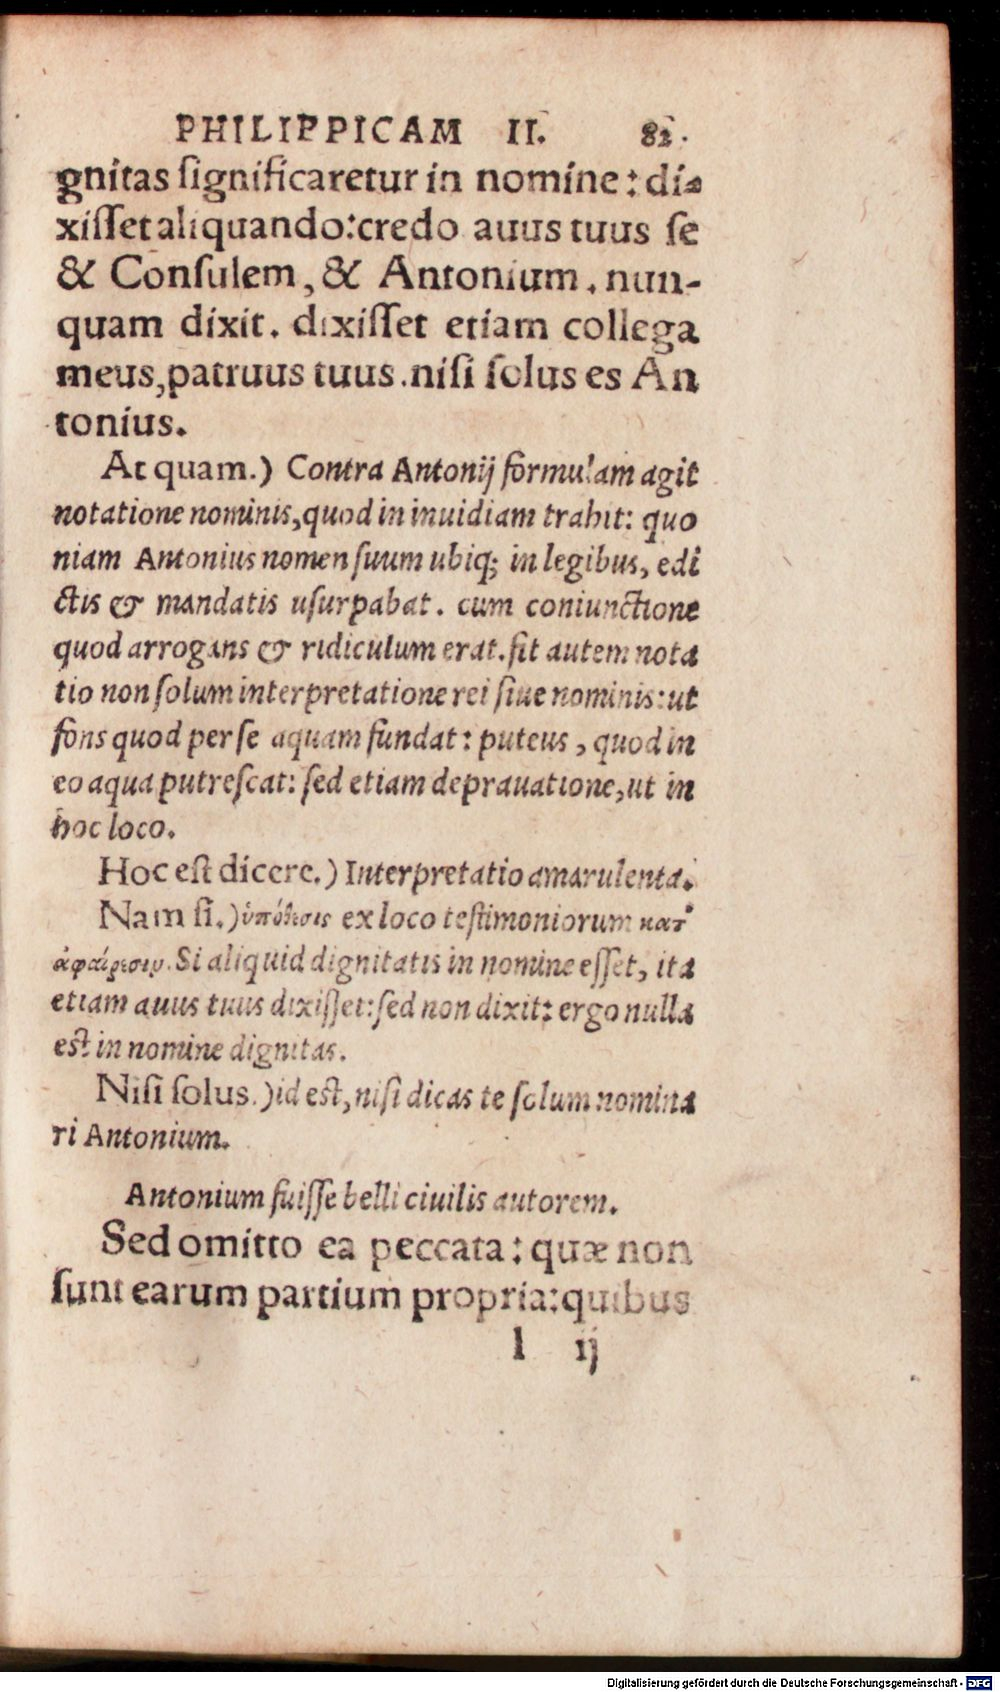 PHILIPPICAM II. 82.
gnitas ſignificaretur in nomine: di-
xiſſet aliquando: credo auus tuus ſe
& Conſulem, & Antonium. nun-
quam dixit. dixiſſet etiam collega
meus, patruus tuus. niſi ſolus es An
tonius.
At quam.) Contra Antonij formulam agit
notatione nominis, quod in inuidiam trahit: quo
niam Antonius nomen ſuum ubiq; in legibus, edi
ctis & mandatis uſurpabat. cum coniunctione
quod arrogans & ridiculum erat. ſit autem nota
tio non ſolum interpretatione rei ſiue nominis: ut
fons quod per ſe aquam fundat: puteus, quod in
eo aqua putreſcat: ſed etiam deprauatione, ut in
hoc loco.
Hoc eſt dicere.) Interpretatio amarulenta.
Nam ſi.) ὑπόθεσις ex loco teſtimoniorum κατ'
ἀφαίρεσιν. Si aliquid dignitatis in nomine eſſet, ita
etiam auus tuus dixiſſet: ſed non dixit: ergo nulla
eſt in nomine dignitas.
Niſi ſolus.) id eſt, niſi dicas te ſolum nomina
ri Antonium.
Antonium fuiſſe belli ciuilis autorem.
Sed omitto ea peccata: quæ non
ſunt earum partium propria: quibus
l ij
Digitalisierung gefördert durch die Deutsche Forschungsgemeinschaft - DFG